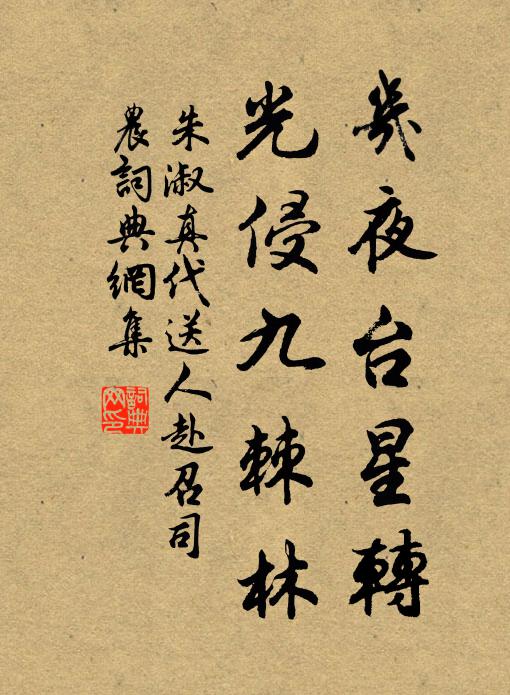 幾夜台星轉
光侵九棘林
朱淑真代送人赴召司
農詞典網集
詞典网印